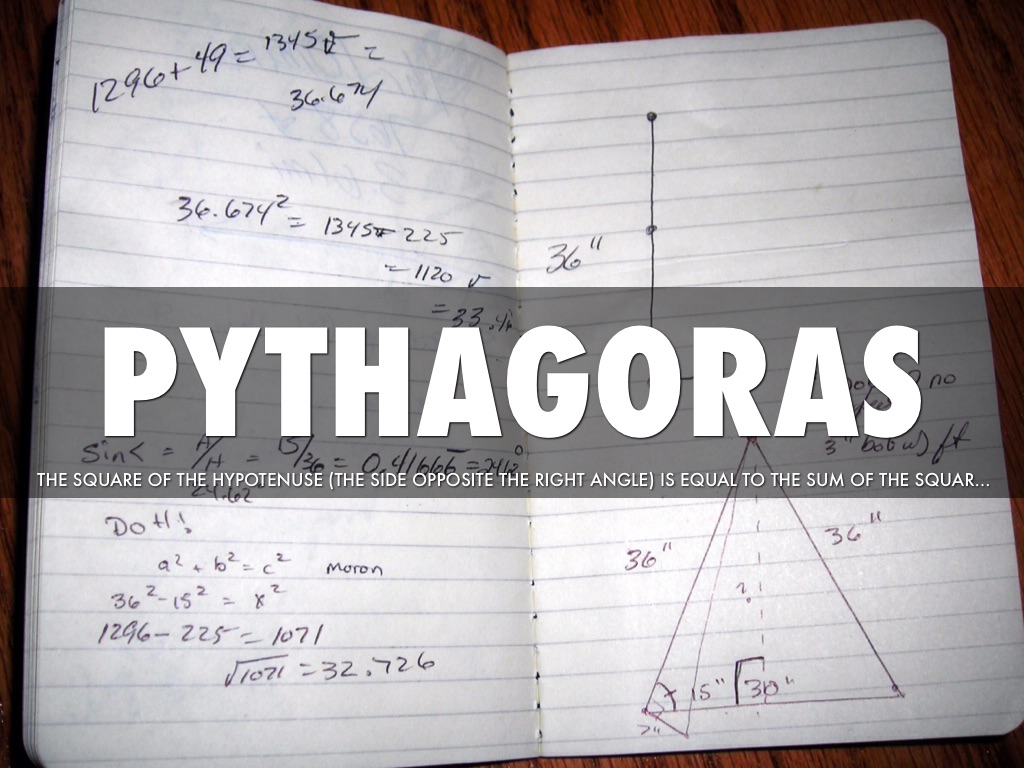 1296+49 = 1345√ =
36.674
36.674² = 1345 - 225
= 1120 √
= 33.4
36"
PYTHAGORAS
no
3" ft
Sin< = = 15/36 = 0.41666 =
THE SQUARE OF THE HYPOTENUSE (THE SIDE OPPOSITE THE RIGHT ANGLE) IS EQUAL TO THE SUM OF THE SQUAR...
24.62
DOH!
a² + b² = c² moron
36² - 15² = x²
1296 - 225 = 1071
√1071 = 32.726
36" 36"
?
15" 30"
7"